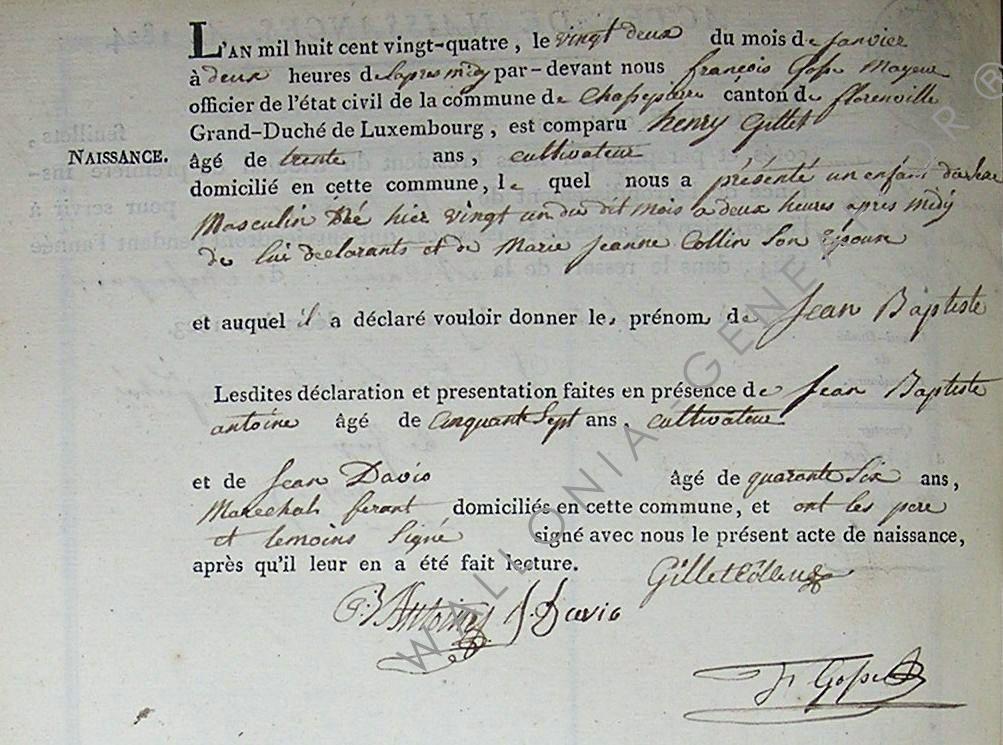 L'AN mil huit cent vingt-quatre, le vingt deux du mois de janvier
à deux heures de lapres midy par-devant nous françois Gofse Mayeur
officier de l'état civil de la commune de Chassepierre canton de florenville
Grand-Duché de Luxembourg, est comparu henry Gillet
NAISSANCE.
âgé de trente ans, cultivateur
domicilié en cette commune, le quel nous a présenté un enfant du sexe
Masculin Né hier vingt un du dit mois a deux heures apres midy
de lui declarants et de Marie Jeanne Collin Son Epouse
et auquel il a déclaré vouloir donner les prénoms de Jean Baptiste
Lesdites déclaration et presentation faites en présence de Jean Baptiste
antoine âgé de Cinquante Sept ans, cultivateur
et de Jean Davio âgé de quarante Six ans,
Marechal ferant domiciliés en cette commune, et ont les pere
et temoins Signé signé avec nous le présent acte de naissance,
après qu'il leur en a été fait lecture.
Gillet
Antoine J. Davio
f. Gofse
WALLONIA GENEALOR ®